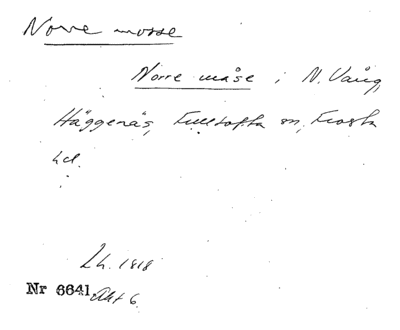 Norre mosse
Norre måse i N. Vång,
Häggenäs, Fulltofta sn, Frosta
hd.
Lh. 1818
Nr 6641, Akt 6.